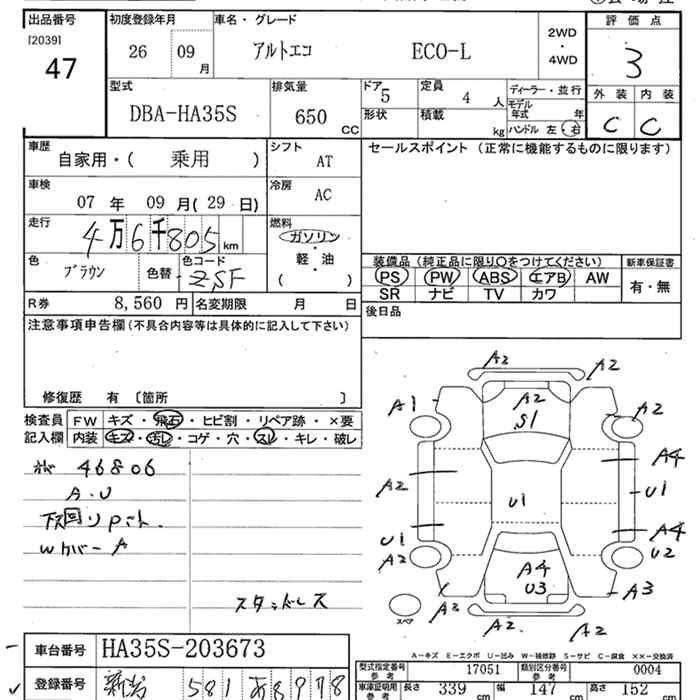 出品番号 初度登録年月 車名・グレード 評価点
[2039] 47 26 09月 アルトエコ ECO-L 2WD・4WD 3
型式 排気量 ドア 5 定員 4人 ディーラー・並行 外装 内装
DBA-HA35S 650 CC 形状 積載 kg モデル年式 年 C C
ハンドル 左 右
車歴 シフト セールスポイント (正常に機能するものに限ります)
自家用・( 乗用 ) AT
車検 冷房
07年 09月(29日) AC
走行 燃料
4万6千805km ガソリン・軽油
色 色コード ( )
ブラウン 色替 ZSF
装備品 (純正品に限り○をつけてください) 新車保証書
PS PW ABS エアB AW 有・無
SR ナビ TV カワ
R券 8,560円 名変期限 月 日 後日品
注意事項申告欄(不具合内容等は具体的に記入して下さい)
修復歴 有 〔箇所 〕
検査員 FW キズ・飛石・ヒビ割・リペア跡・×要
記入欄 内装 キズ・汚レ・コゲ・穴・スレ・キレ・破レ
46806
A.U
下回りPット.
Wカバーア
スタッドレス
A2 A2
A2
A1 S1 A2
A4
A2 U1 U1
U1 A4
A2 A4 U2
U3
A2 A3
スペア
A2 A2
A-キズ E-エクボ U-凹み W-補修跡 S-サビ C-腐食 ××-交換済
車台番号 HA35S-203673
登録番号 581 あ8978
型式指定番号 参考 17051 類別区分番号 参考 0004
車検証記載 参考 長さ 339cm 幅 147cm 高さ 152cm